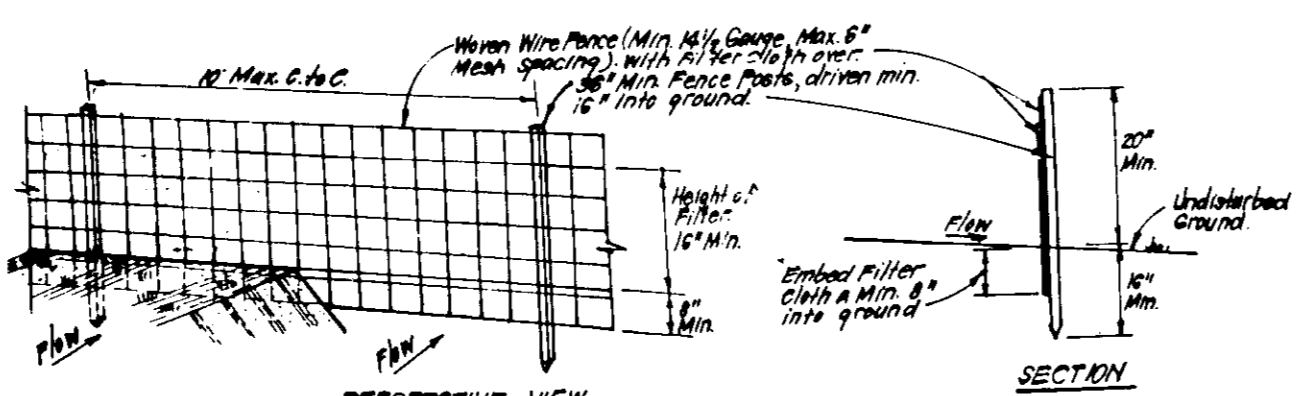 Woven Wire Fence (Min. 14 1/2 Gauge, Max. 6"
Mesh Spacing) with Filter cloth over.
10' Max. C. to C.
36" Min. Fence Posts, driven min.
16" into ground.
Height of
Filter
16" Min.
8"
Min.
Flow
Flow
PERSPECTIVE VIEW
20"
Min.
Undisturbed
Ground.
Flow
Embed Filter
Cloth a Min. 8"
into ground
16"
Min.
SECTION